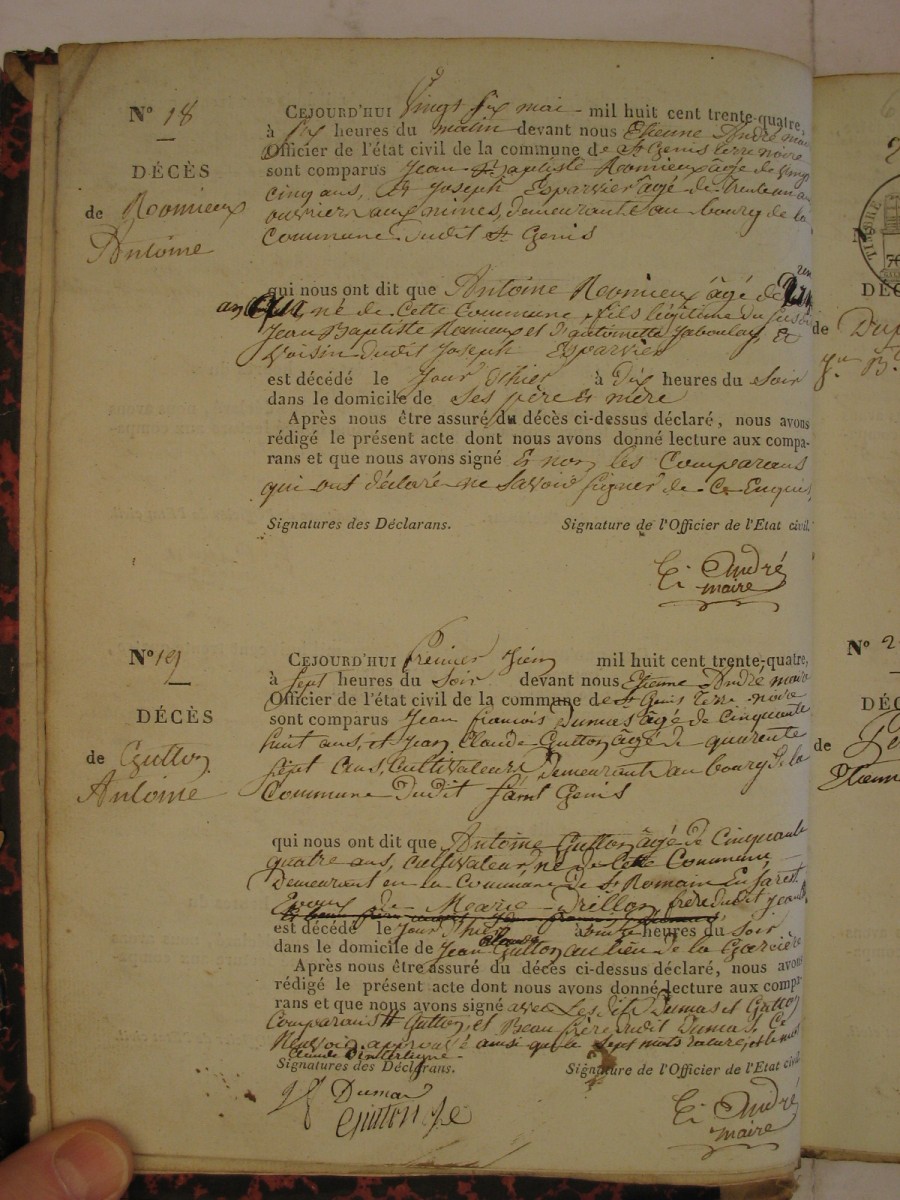 N° 18
DÉCÈS
de Roomieux
Antoine
CEJOURD'HUI Vingt six mai mil huit cent trente-quatre,
à six heures du matin devant nous Etienne André maire
Officier de l'état civil de la commune de St Genis terre noire
sont comparus Jean Baptiste Roomieux âgé de vingt
cinq ans, et Joseph Esparvier âgé de trente un ans
ouvriers aux mines, demeurants au bourg de la
Commune dudit St Genis
qui nous ont dit que Antoine Roomieux âgé de un
an, né de cette commune, fils légitime du susdit
Jean Baptiste Romieux et d'antoinette Jaboulay, et
Voisin dudit Joseph Esparvier
est décédé le Jour d'hier à dix heures du Soir
dans le domicile de ses père et mère
Après nous être assuré du décès ci-dessus déclaré, nous avons
rédigé le présent acte dont nous avons donné lecture aux compa-
rans et que nous avons signé Et non les Comparans
qui ont déclaré ne Savoir signer de Ce Enquis
Signatures des Déclarans. Signature de l'Officier de l'Etat civil.
Et André
maire
N° 19
DÉCÈS
de Gutton
Antoine
CEJOURD'HUI Premier Juin mil huit cent trente-quatre,
à sept heures du Soir devant nous Etienne André maire
Officier de l'état civil de la commune de St Genis terre noire
sont comparus Jean françois Dumas âgé de Cinquante
huit ans, et Jean Claude Gutton âgé de quarente
sept ans, Cultivateurs Demeurants au bourg de la
Commune Dudit saint Genis
qui nous ont dit que Antoine Gutton âgé de Cinquante
quatre ans, cultivateur, né de Cette Commune
Demeurant en la Commune de St Romain En Jarest
Epoux de Marie Drillon, frère dudit Jean
est décédé le Jour d'hier à heures du Soir
dans le domicile de Jean Claude Gutton au lieu de la
Après nous être assuré du décès ci-dessus déclaré, nous avons
rédigé le présent acte dont nous avons donné lecture aux compa-
rans et que nous avons signé avec Les dits Dumas et Gutton
Comparans Gutton, et Beau frère dudit Dumas, Ce
Renvoi approuvé ainsi que le sept mots rature, et le mot
Claude Dinterligne
Signatures des Déclarans. Signature de l'Officier de l'Etat civil
Dumas
Gutton
Et André
maire
TIMBRE
N° 2
de